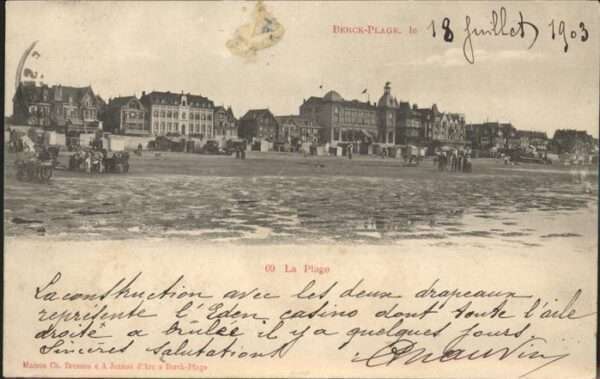 BERCK-PLAGE, le 18 Juillet 1903
69 La Plage
La construction avec les deux drapeaux
représente l'Eden casino dont toute l'aile
droite a brulée il y a quelques jours.
Sincères salutations
Maison Ch. Dresson e A Jeanne d'Arc e Berck-Plage